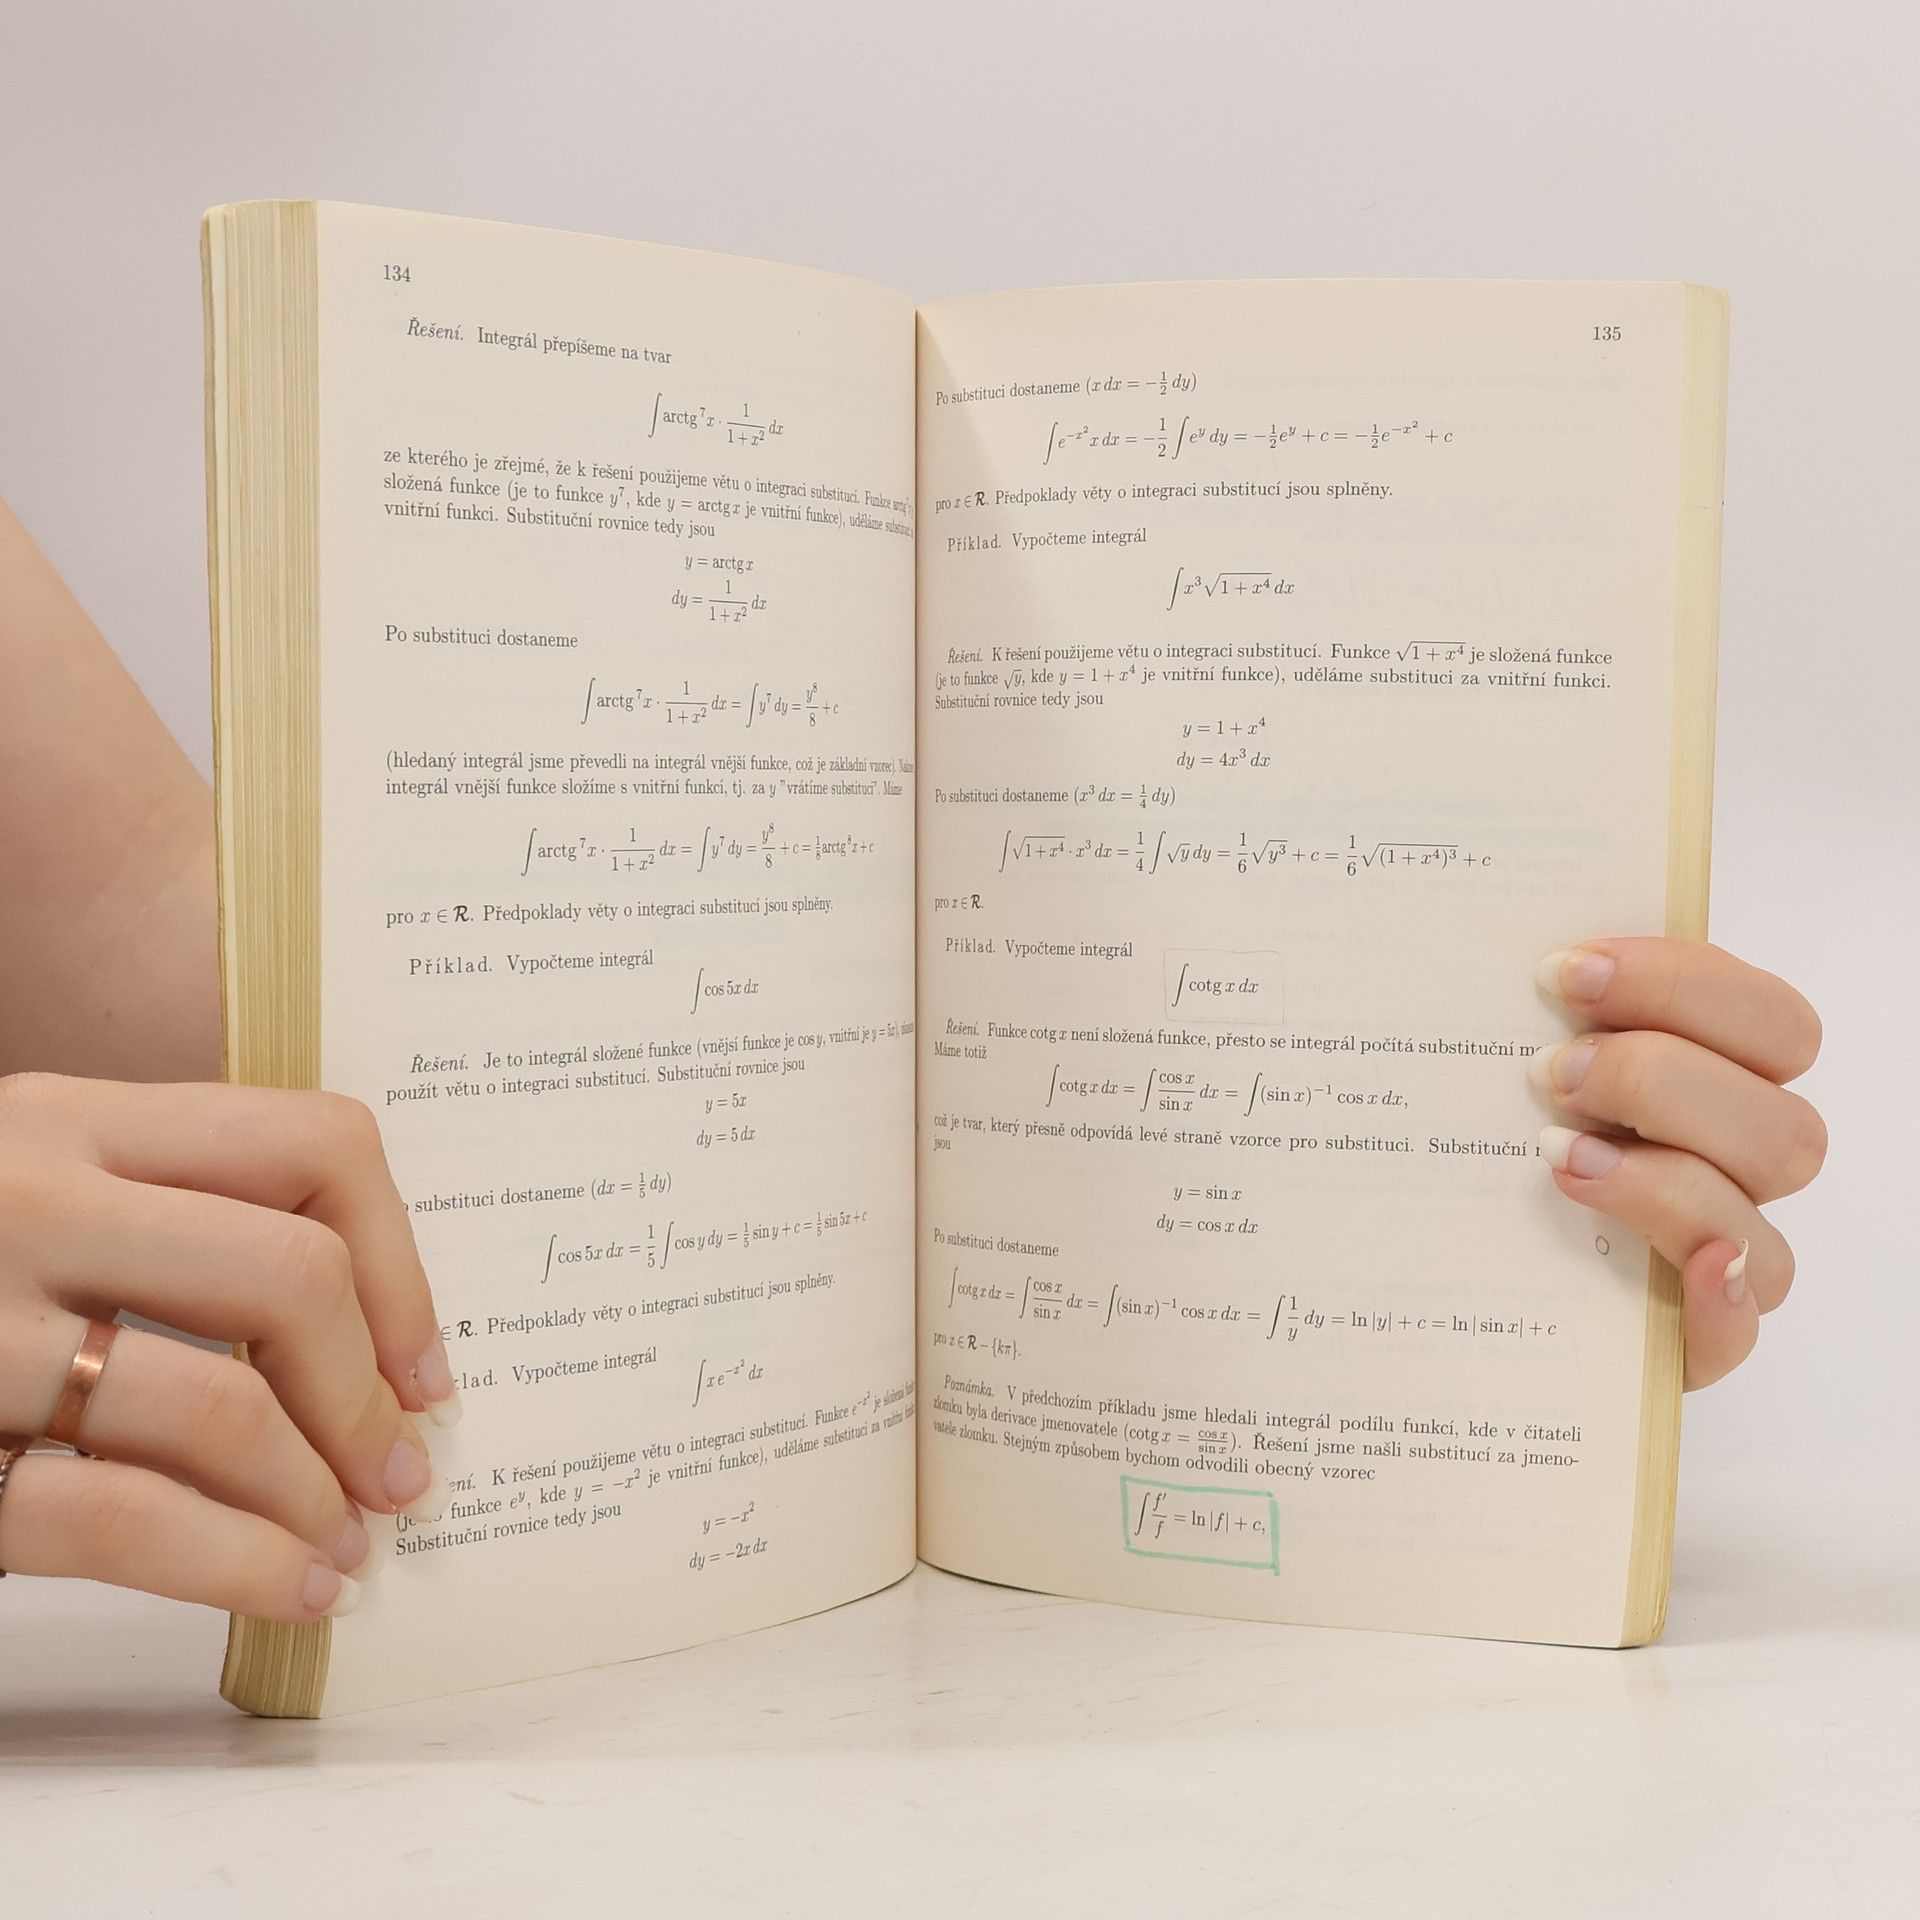 134
Řešení. Integrál přepíšeme na tvar
∫ arctg⁷x · 1/(1+x²) dx
ze kterého je zřejmé, že k řešení použijeme větu o integraci substitucí. Funkce
složená funkce (je to funkce y⁷, kde y = arctg x je vnitřní funkce), uděláme
vnitřní funkci. Substituční rovnice tedy jsou
y = arctg x
dy = 1/(1+x²) dx
Po substituci dostaneme
∫ arctg⁷x · 1/(1+x²) dx = ∫ y⁷ dy = y⁸/8 + c
(hledaný integrál jsme převedli na integrál vnější funkce, což je základní vzorec).
integrál vnější funkce složíme s vnitřní funkcí, tj. za y "vrátíme substituci". Máme
∫ arctg⁷x · 1/(1+x²) dx = ∫ y⁷ dy = y⁸/8 + c = 1/8 arctg⁸x + c
pro x ∈ R. Předpoklady věty o integraci substitucí jsou splněny.
Příklad. Vypočteme integrál
∫ cos 5x dx
Řešení. Je to integrál složené funkce (vnějsí funkce je cos y, vnitřní je y = 5x),
použít větu o integraci substitucí. Substituční rovnice jsou
y = 5x
dy = 5 dx
substituci dostaneme (dx = 1/5 dy)
∫ cos 5x dx = 1/5 ∫ cos y dy = 1/5 sin y + c = 1/5 sin 5x + c
∈ R. Předpoklady věty o integraci substitucí jsou splněny.
klad. Vypočteme integrál
∫ x e^(−x²) dx
ení. K řešení použijeme větu o integraci substitucí. Funkce e^(−x²) je složená
funkce e^y, kde y = −x² je vnitřní funkce), uděláme substituci za vnitřní
Substituční rovnice tedy jsou
y = −x²
dy = −2x dx
135
Po substituci dostaneme (x dx = −1/2 dy)
∫ e^(−x²) x dx = −1/2 ∫ e^y dy = −1/2 e^y + c = −1/2 e^(−x²) + c
pro x ∈ R. Předpoklady věty o integraci substitucí jsou splněny.
Příklad. Vypočteme integrál
∫ x³√(1 + x⁴) dx
Řešení. K řešení použijeme větu o integraci substitucí. Funkce √(1 + x⁴) je složená funkce
(je to funkce √y, kde y = 1 + x⁴ je vnitřní funkce), uděláme substituci za vnitřní funkci.
Substituční rovnice tedy jsou
y = 1 + x⁴
dy = 4x³ dx
Po substituci dostaneme (x³ dx = 1/4 dy)
∫ √(1+x⁴) · x³ dx = 1/4 ∫ √y dy = 1/6 √(y³) + c = 1/6 √((1 + x⁴)³) + c
pro x ∈ R.
Příklad. Vypočteme integrál
∫ cotg x dx
Řešení. Funkce cotg x není složená funkce, přesto se integrál počítá substituční
Máme totiž
∫ cotg x dx = ∫ cos x/sin x dx = ∫ (sin x)⁻¹ cos x dx,
což je tvar, který přesně odpovídá levé straně vzorce pro substituci. Substituční
jsou
y = sin x
dy = cos x dx
Po substituci dostaneme
∫ cotg x dx = ∫ cos x/sin x dx = ∫ (sin x)⁻¹ cos x dx = ∫ 1/y dy = ln |y| + c = ln | sin x| + c
pro x ∈ R − {kπ}.
Poznámka. V předchozím příkladu jsme hledali integrál podílu funkcí, kde v čitateli
zlomku byla derivace jmenovatele (cotg x = cos x/sin x). Řešení jsme našli substitucí za jmeno-
vatele zlomku. Stejným způsobem bychom odvodili obecný vzorec
∫ f′/f = ln |f| + c,